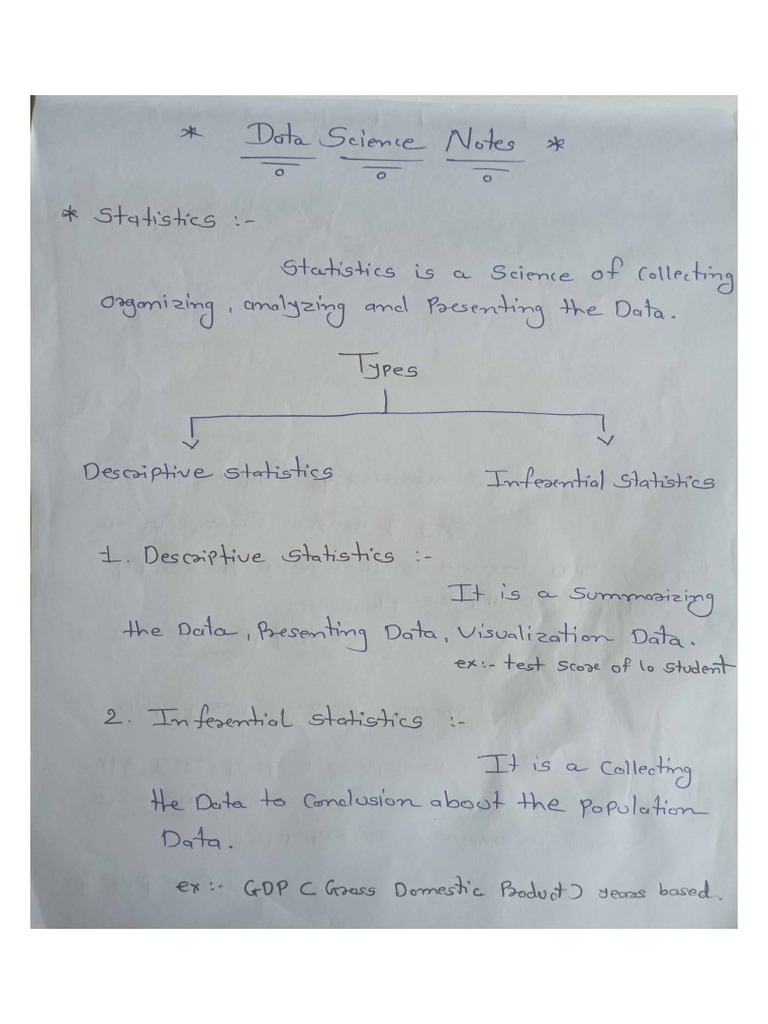 * Data Science Notes *
* Statistics :-
Statistics is a Science of Collecting
Organizing, analyzing and Presenting the Data.
Types
Descriptive Statistics Inferential Statistics
1. Descriptive Statistics :-
It is a Summarizing
the Data, Presenting Data, Visualization Data.
ex:- test score of 10 student
2. Inferential Statistics :-
It is a Collecting
the Data to Conclusion about the Population
Data.
ex:- GDP ( Gross Domestic Product ) years based.